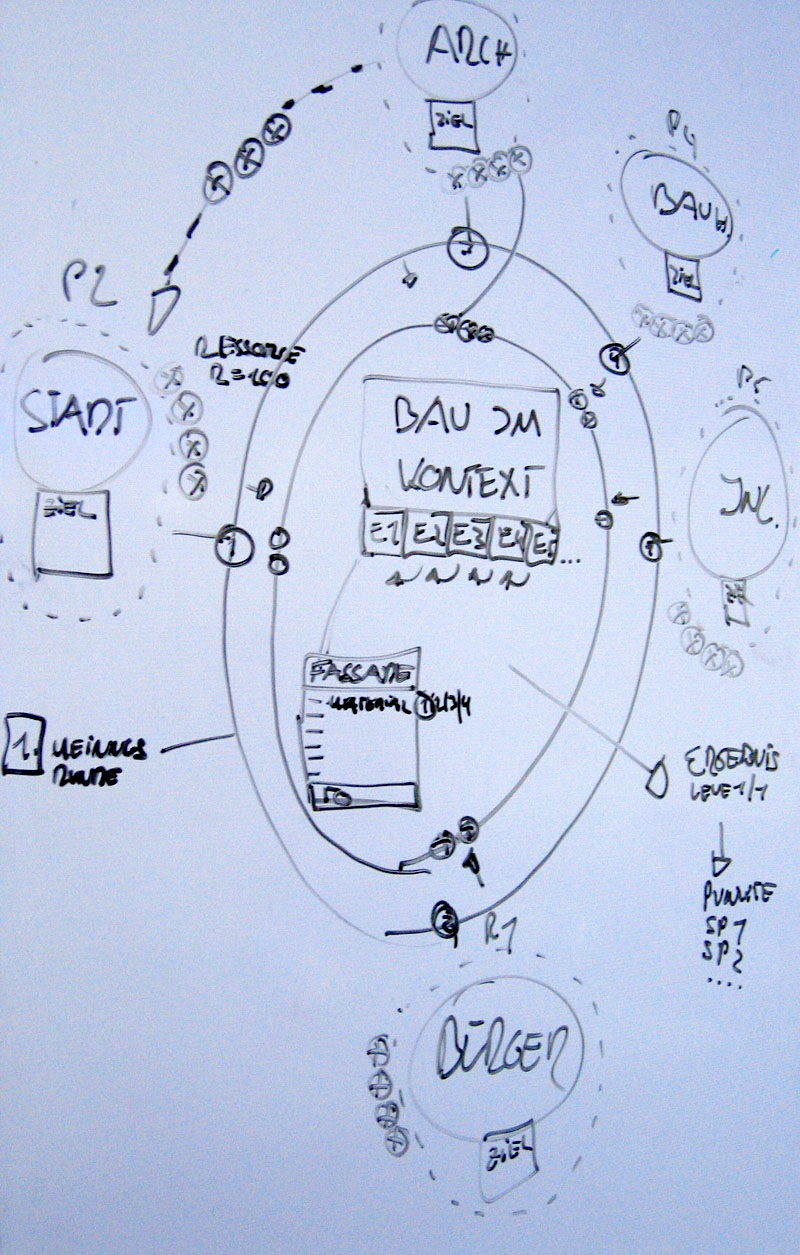 ARCH
ZIEL
P4
BAU
ZIEL
P2
RESSOURCE
R=100
STADT
ZIEL
BAU IM
KONTEXT
E1 E2 E3 E4 E5 ...
P5
ING.
FASSADE
MATERIAL 1/2/3/4
1. MEINUNGS
RUNDE
ERGEBNIS
LEVEL/1
PUNKTE
SP1
SP2
....
BÜRGER
ZIEL